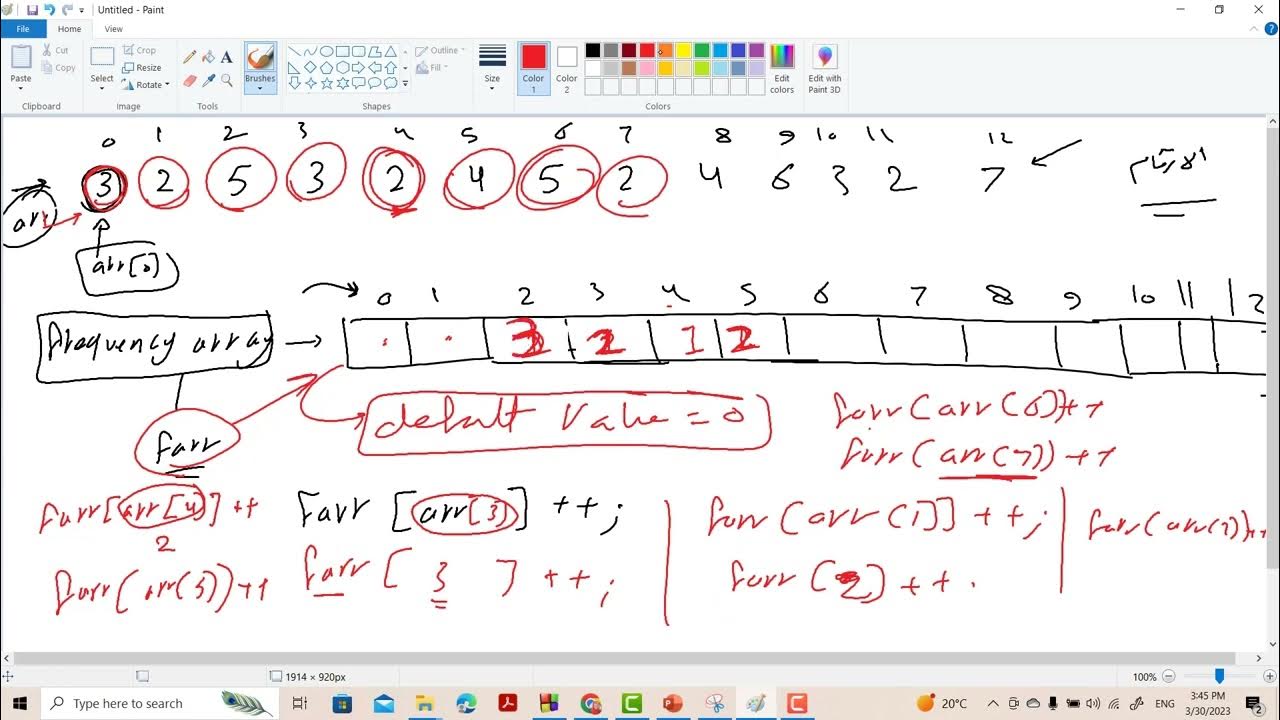 Untitled - Paint
File Home View
Paste Cut Copy Select Crop Resize Rotate Brushes Outline Fill Size Color 1 Color 2 Edit colors Edit with Paint 3D
Clipboard Image Tools Shapes Colors
0 1 2 3 4 5 6 7 8 9 10 11 12
3 2 5 3 2 4 5 2 4 6 3 2 7
arr
arr[0]
0 1 2 3 4 5 6 7 8 9 10 11 12
frequency array
3 2 1 2
default Value = 0
farr
farr(arr(6)++
farr(arr(7))++
farr[arr[4]]++
2
farr(arr(5))++
Farr [arr[3]] ++;
farr [ 3 ] ++;
farr(arr(1)] ++;
farr(2)++
farr(arr(7))++
1914 × 920px
100%
Type here to search
20°C
ENG
3:45 PM
3/30/2023
2